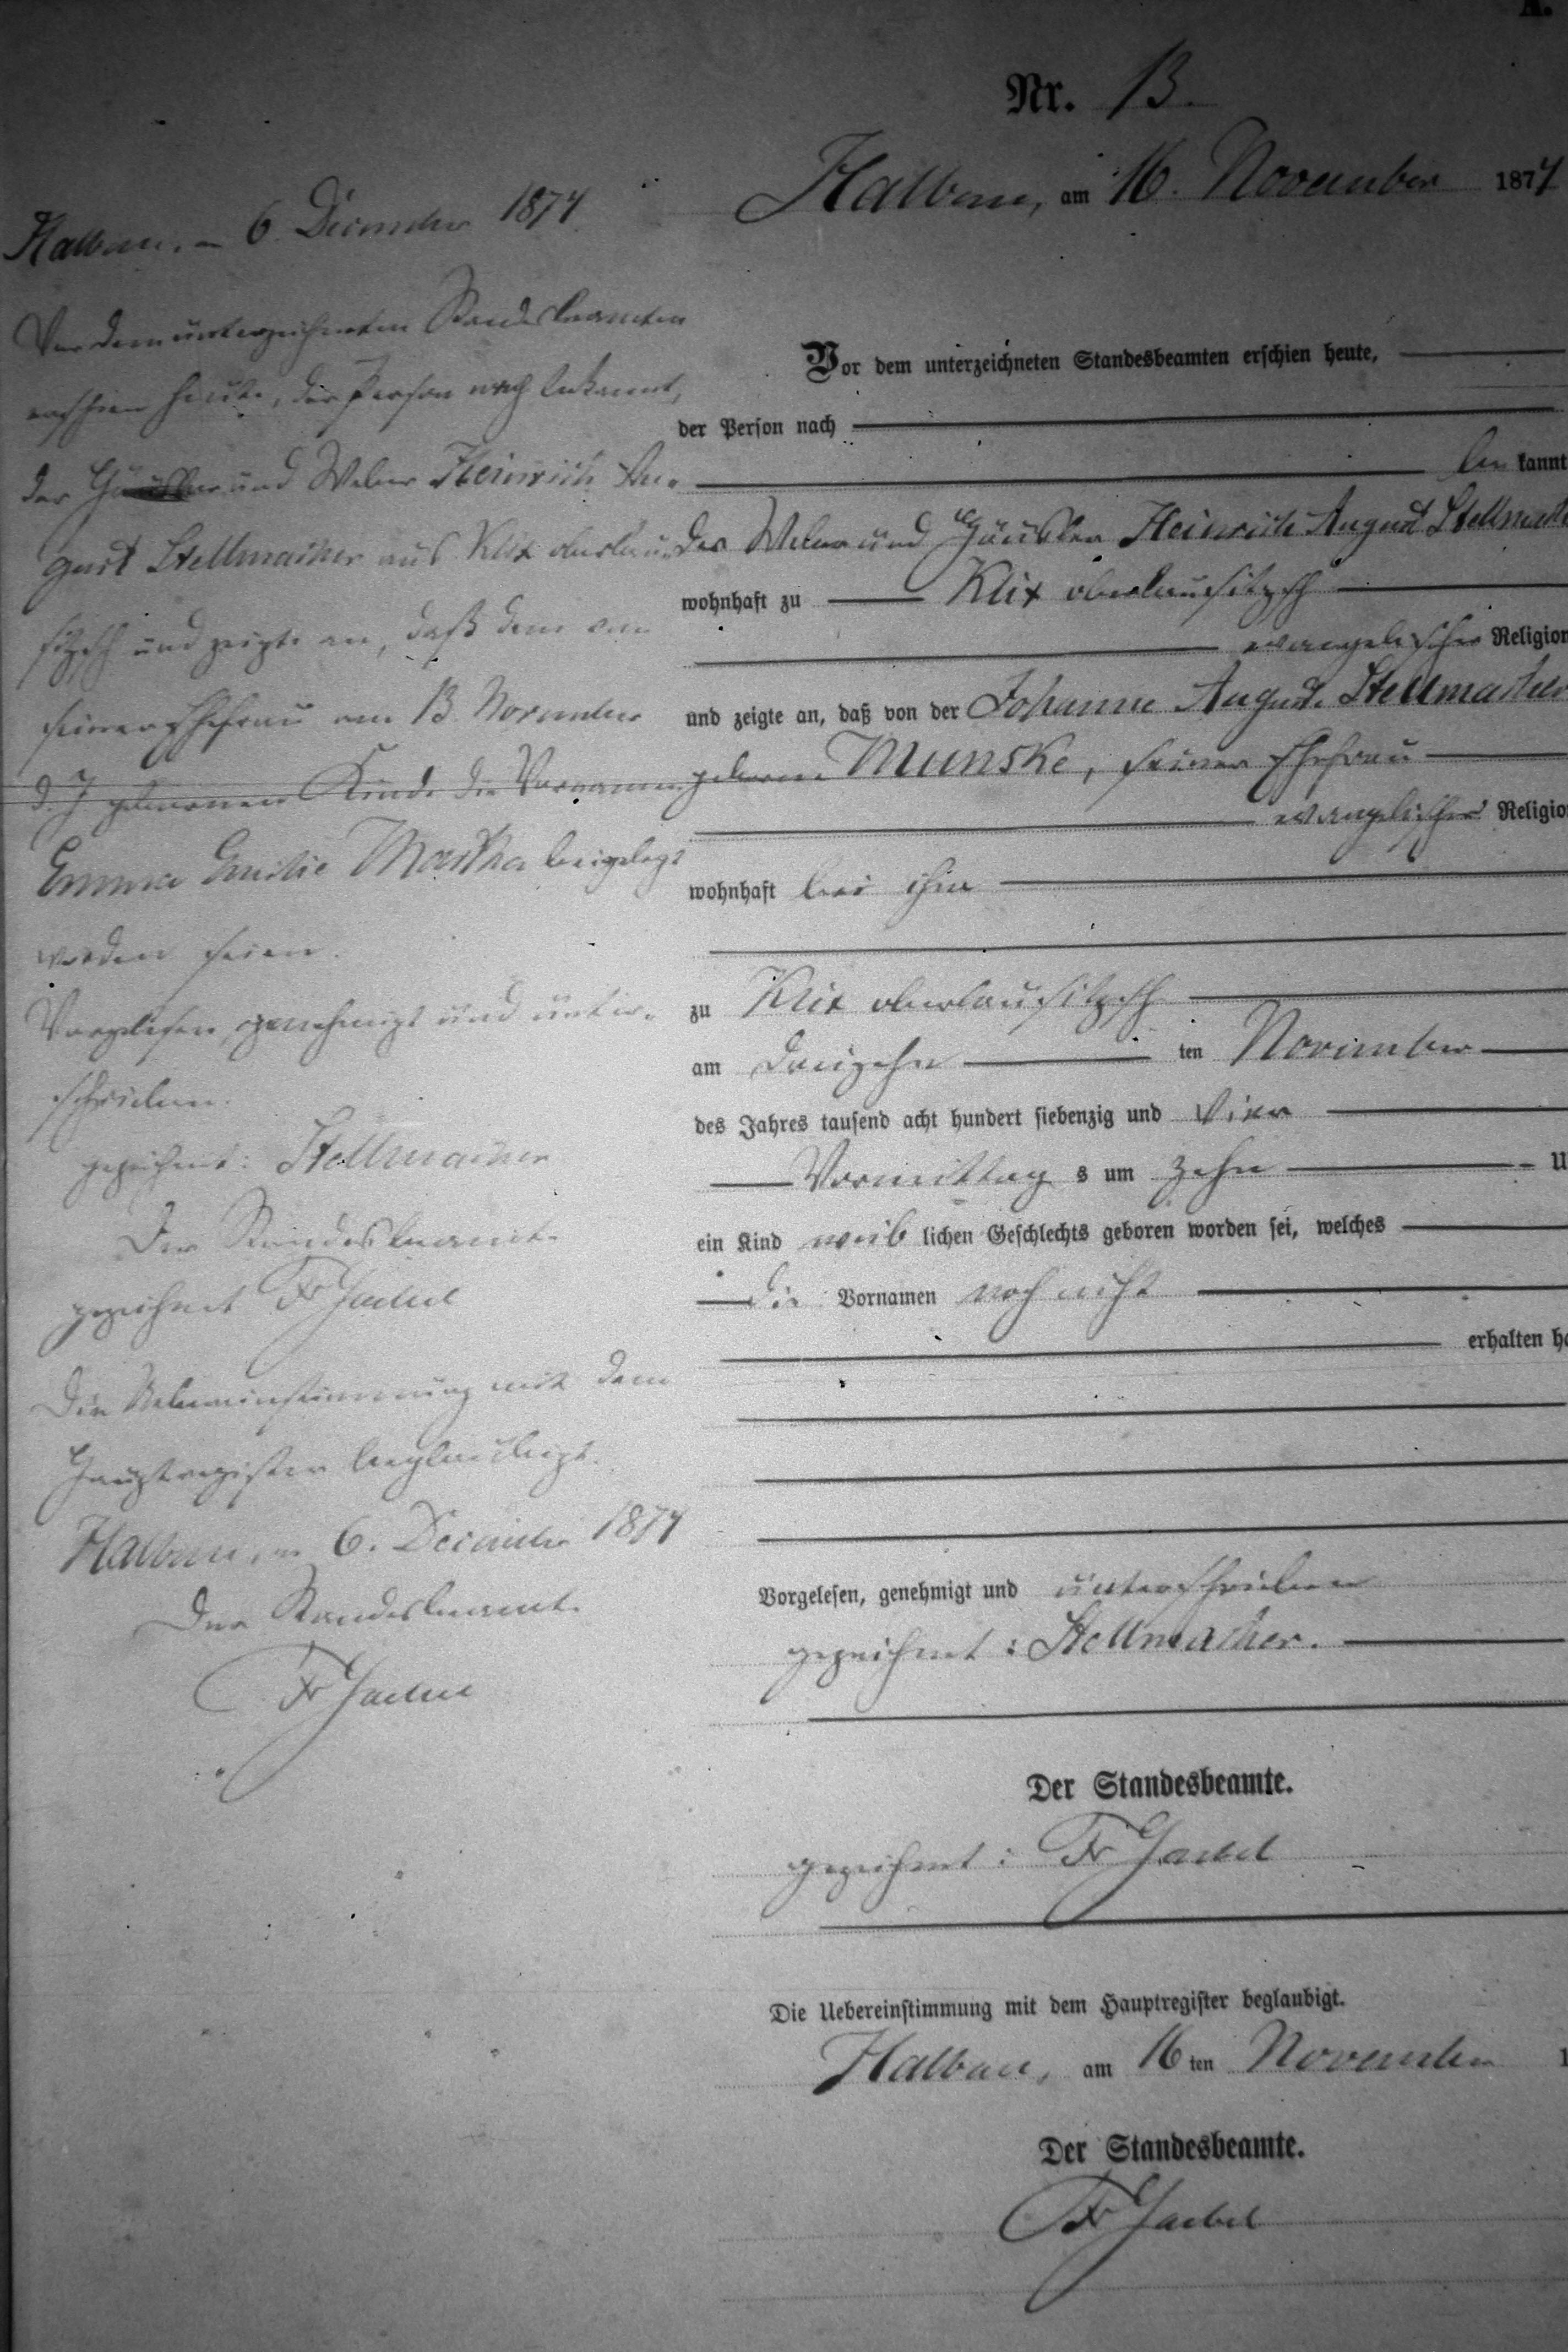 A.
Nr. 13.
Halbau, am 16. November 1874
Vor dem unterzeichneten Standesbeamten erschien heute,
der Person nach
be kannt
der Weber und Häusler Heinrich August Stellmache
wohnhaft zu Klix oberlausitzsch
evangelischer Religion
und zeigte an, daß von der Johanne August. Stellmacher
geborene Munske, seiner Ehefrau
evangelischer Religio
wohnhaft bei ihm
zu Klix oberlausitzsch
am dreizehn ten November
des Jahres tausend acht hundert siebenzig und vier
Vormittag s um zehn U
ein Kind weib lichen Geschlechts geboren worden sei, welches
die Vornamen noch nicht
erhalten ha
Vorgelesen, genehmigt und unterschrieben
gezeichnet: Stellmacher.
Der Standesbeamte.
gezeichnet: Fr
Die Uebereinstimmung mit dem Hauptregister beglaubigt.
Halbau, am 16 ten November 1
Der Standesbeamte.
Fr
Halbau, am 6. December 1874.
Vor dem unterzeichneten Standesbeamten
erschien heute, der Person nach bekannt,
der Häusler und Weber Heinrich Au-
gust Stellmacher aus Klix oberlau-
sitzsch und zeigte an, daß dem von
seiner Ehefrau am 13. November
d. J. geborenen Kinde die Vornamen
Emma Emilie Martha beigelegt
worden seien.
Vorgelesen, genehmigt und unter-
schrieben.
gezeichnet: Stellmacher
Der Standesbeamte
gezeichnet Fr
Die Uebereinstimmung mit dem
Hauptregister beglaubigt.
Halbau, am 6. December 1874
Der Standesbeamte.
Fr